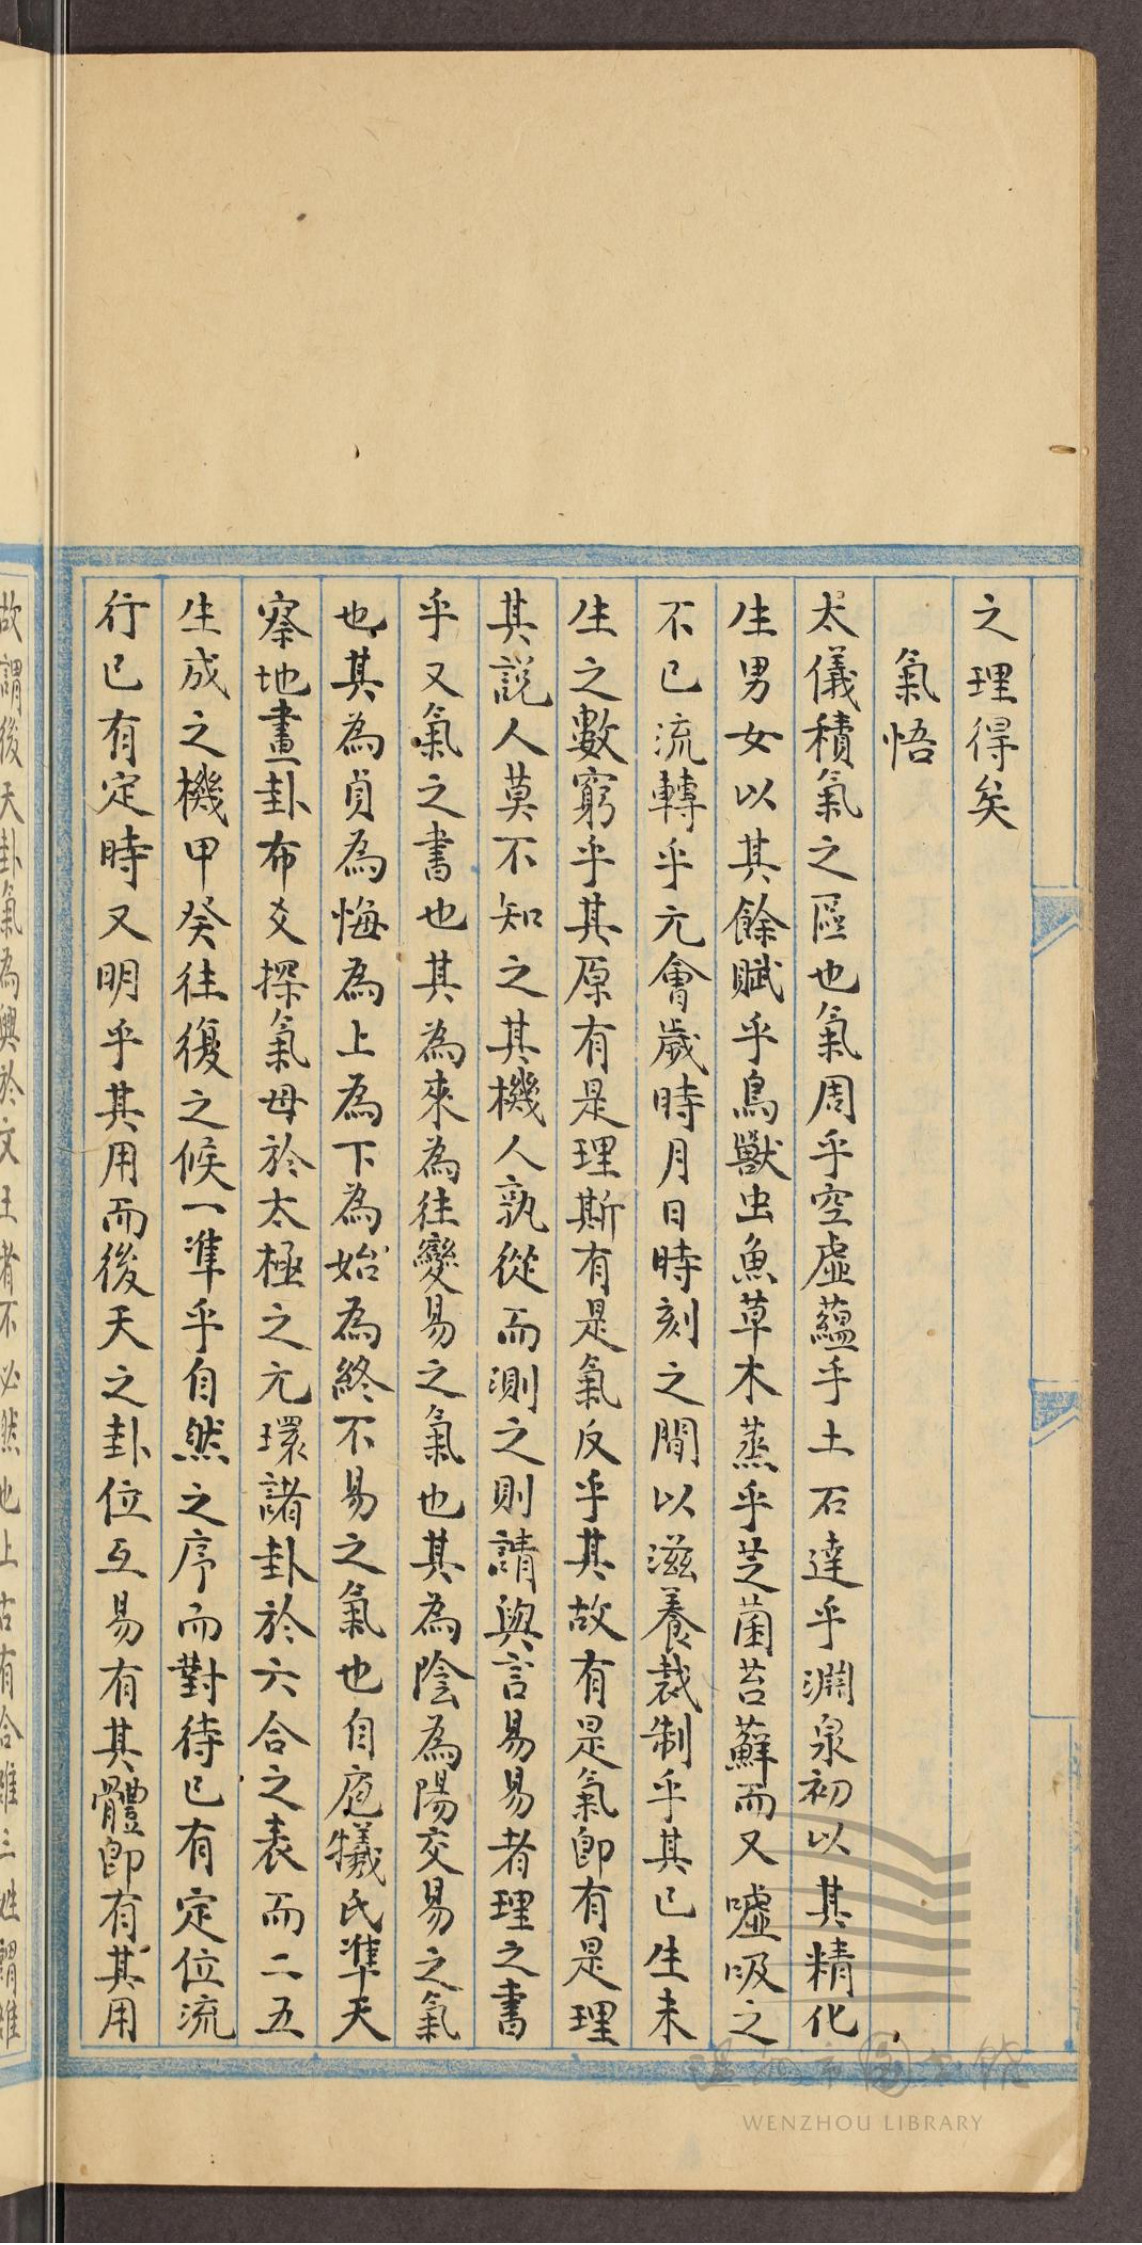 之理得矣
氣悟
太儀積氣之區也氣周乎空虛蘊乎土石達乎淵泉初以其精化
生男女以其餘賦乎鳥獸虫魚草木蒸乎芝菌苔蘚而又噓吸之
不已流轉乎元會歲時月日時刻之間以滋養裁制乎其已生未
生之數窮乎其原有是理斯有是氣反乎其故有是氣即有是理
其説人莫不知之其機人孰從而測之則請與言易易者理之書
乎又氣之書也其為來為往變易之氣也其為陰為陽交易之氣
也其為貞為悔為上為下為始為終不易之氣也自庖犧氏準天
察地畫卦布爻探氣母於太極之元環諸卦於六合之表而二五
生成之機甲癸往復之候一準乎自然之序而對待已有定位流
行已有定時又明乎其用而後天之卦位互易有其體即有其用
故謂後天卦氣為興於文王者不必然也上古有合雒三姓謂雒
WENZHOU LIBRARY